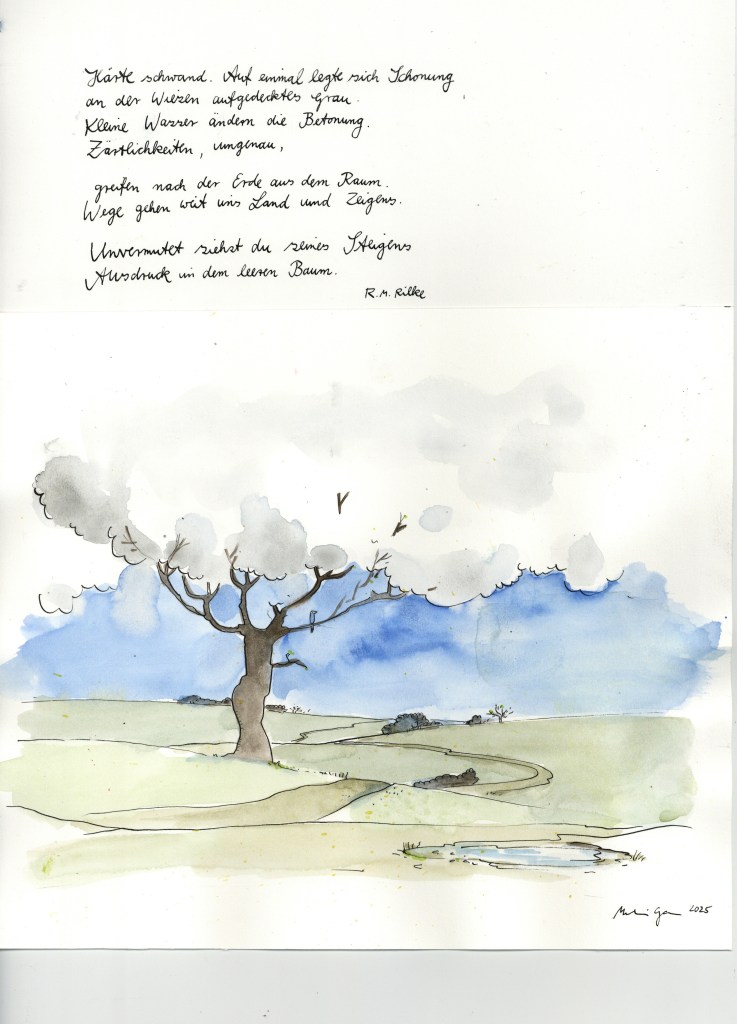 Härte schwand. Auf einmal legte sich Schonung
an der Wiesen aufgedecktes Grau.
Kleine Wasser ändern die Betonung.
Zärtlichkeiten, ungenau,
greifen nach der Erde aus dem Raum.
Wege gehen weit ins Land und Zeigens.
Unvermutet siehst du seines Steigens
Ausdruck in dem leeren Baum.
R. M. Rilke
2025